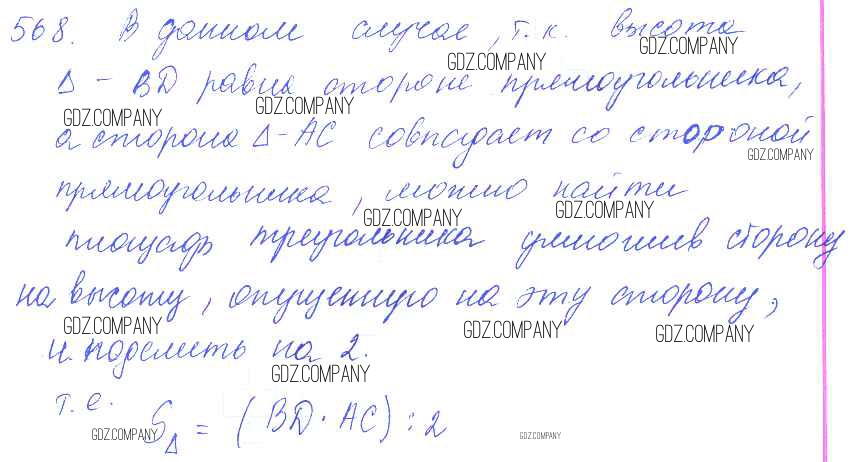 568. В данном случае, т.к. высота
GDZ.COMPANY GDZ.COMPANY
Δ - BD равна стороне прямоугольника,
GDZ.COMPANY GDZ.COMPANY
а сторона Δ - AC совпадает со стороной
GDZ.COMPANY
прямоугольника, можно найти
GDZ.COMPANY GDZ.COMPANY
площадь треугольника умножив сторону
на высоту, опущенную на эту сторону,
GDZ.COMPANY GDZ.COMPANY GDZ.COMPANY
и поделить на 2.
GDZ.COMPANY
т.е. S Δ = (BD · AC) : 2
GDZ.COMPANY GDZ.COMPANY